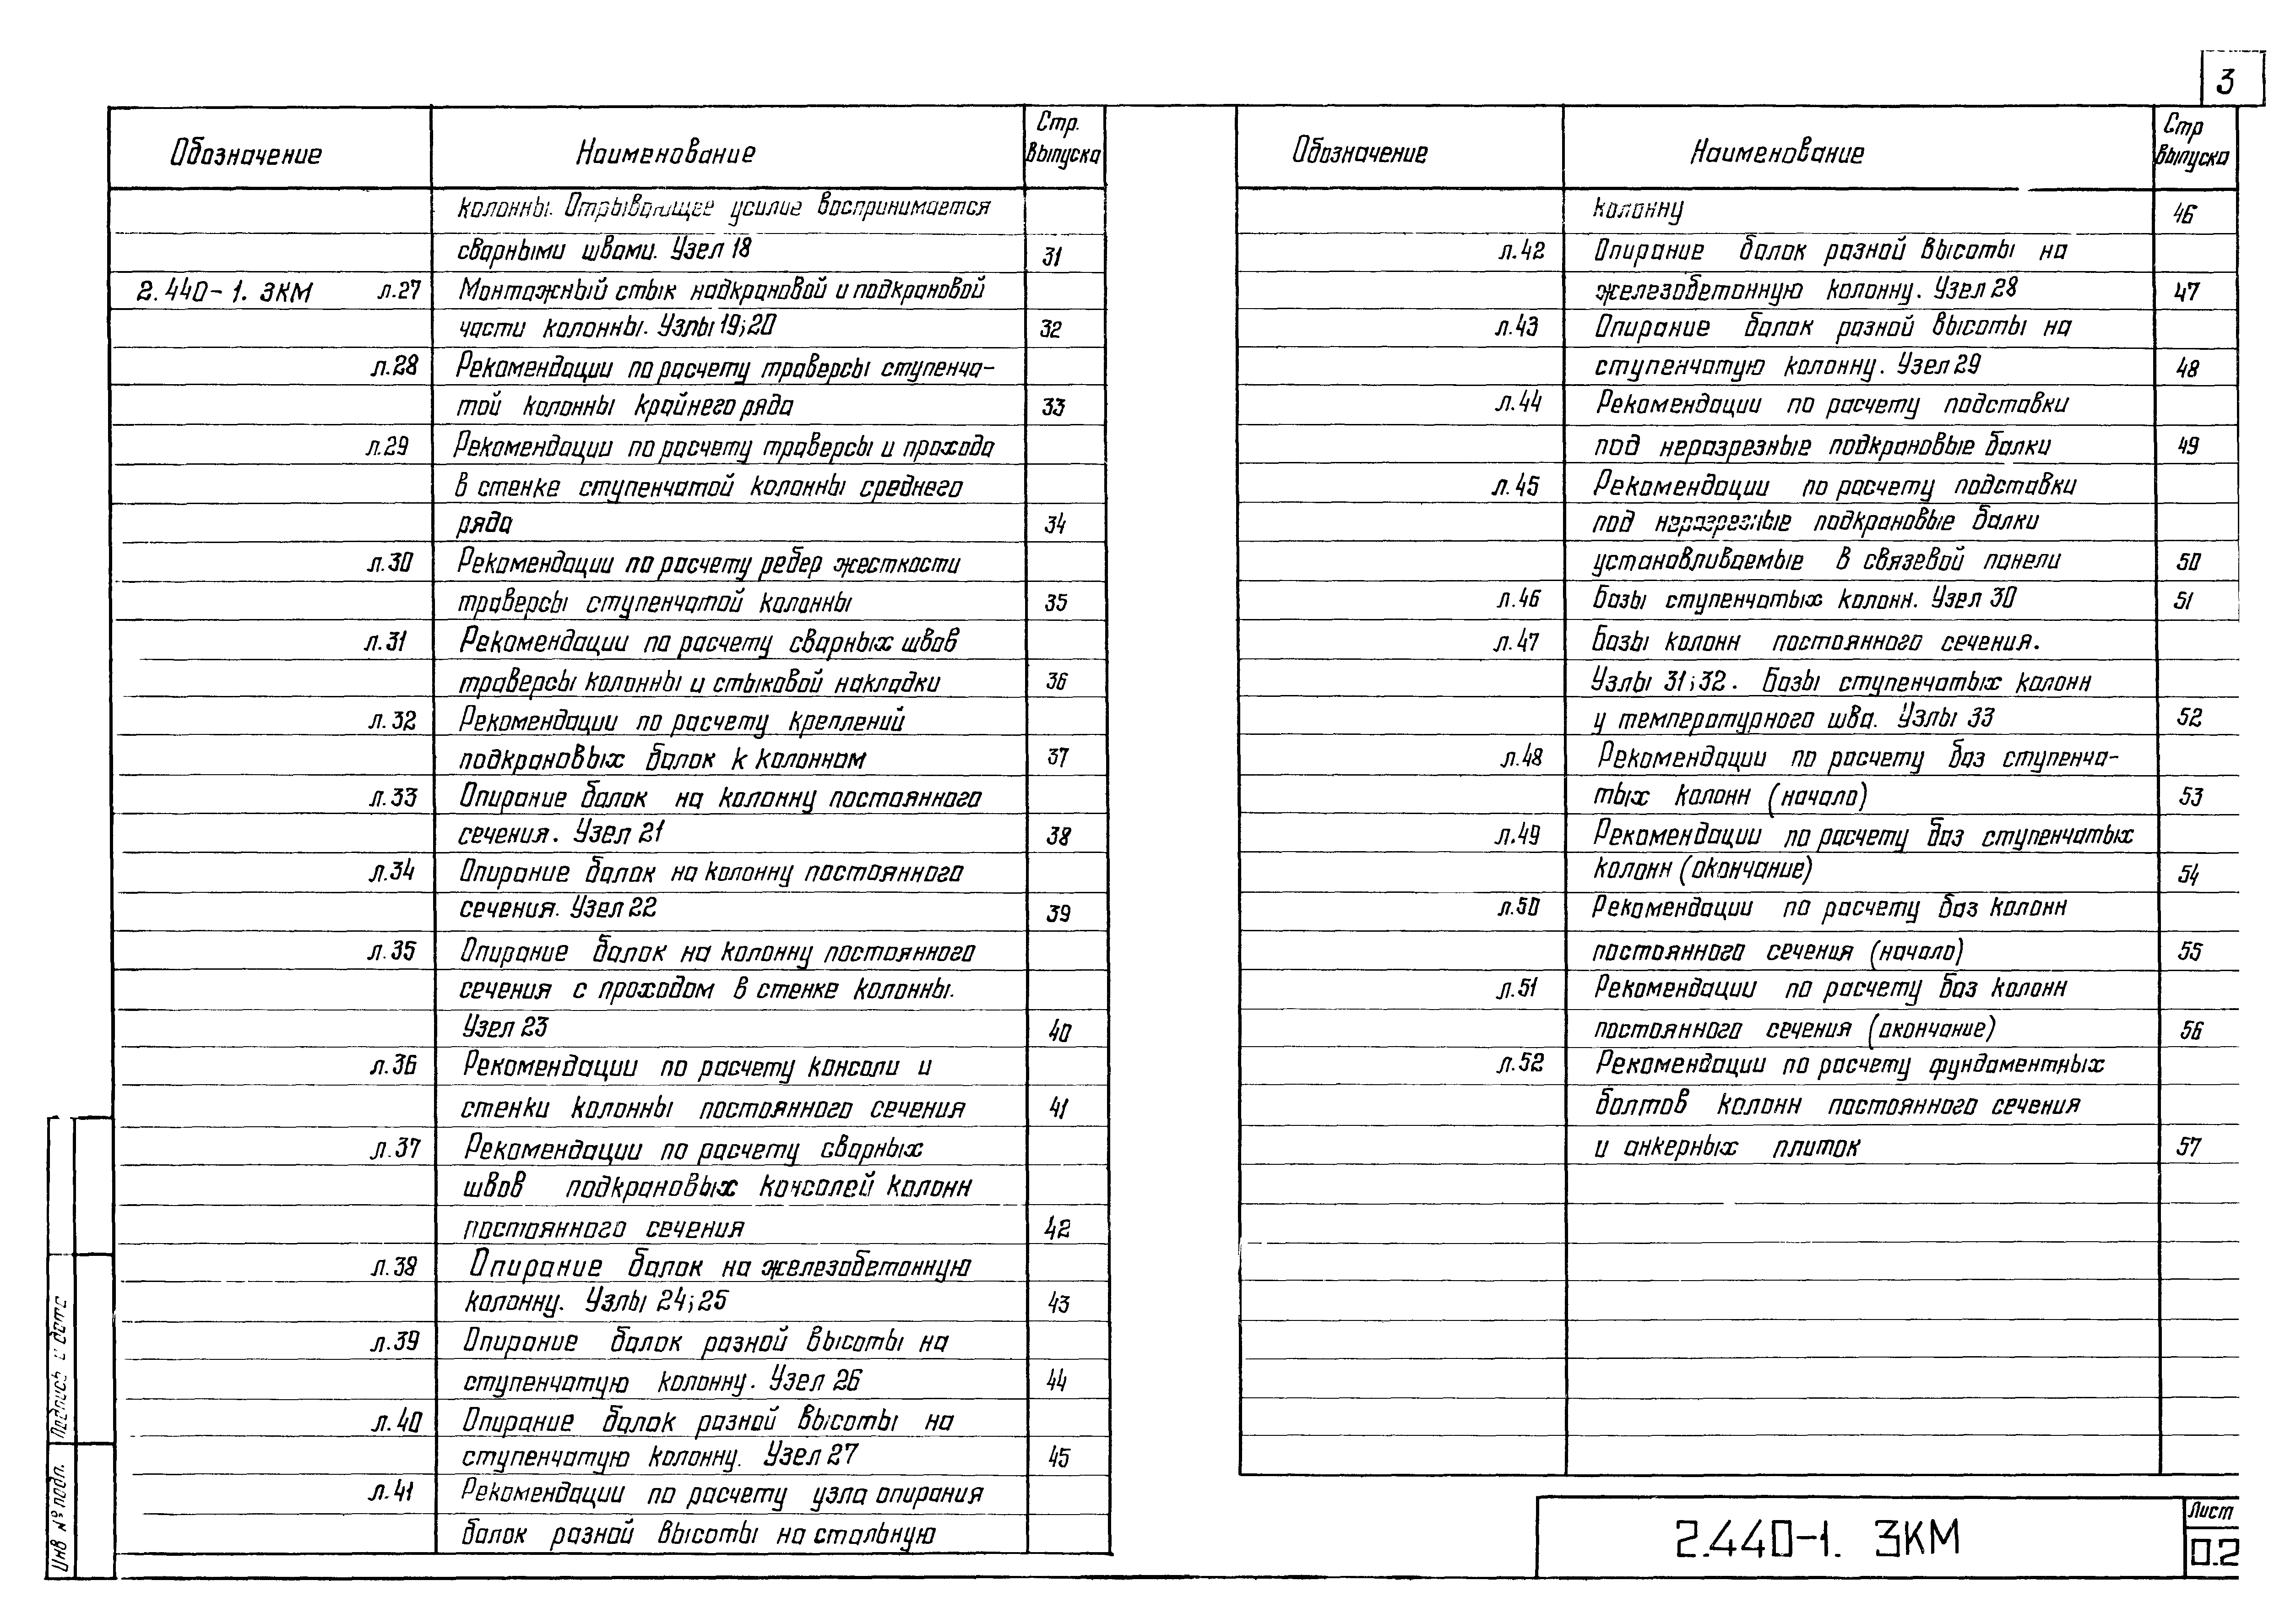 3
Обозначение Наименование Стр. выпуска
колонны. Отрывающее усилие воспринимается
сварными швами. Узел 18 31
2.440-1. 3КМ л.27 Монтажный стык надкрановой и подкрановой
части колонны. Узлы 19; 20 32
л.28 Рекомендации по расчету траверсы ступенча-
той колонны крайнего ряда 33
л.29 Рекомендации по расчету траверсы и прохода
в стенке ступенчатой колонны среднего
ряда 34
л.30 Рекомендации по расчету ребер жесткости
траверсы ступенчатой колонны 35
л.31 Рекомендации по расчету сварных швов
траверсы колонны и стыковой накладки 36
л.32 Рекомендации по расчету креплений
подкрановых балок к колоннам 37
л.33 Опирание балок на колонну постоянного
сечения. Узел 21 38
л.34 Опирание балок на колонну постоянного
сечения. Узел 22 39
л.35 Опирание балок на колонну постоянного
сечения с проходом в стенке колонны.
Узел 23 40
л.36 Рекомендации по расчету консоли и
стенки колонны постоянного сечения 41
л.37 Рекомендации по расчету сварных
швов подкрановых консолей колонн
постоянного сечения 42
л.38 Опирание балок на железобетонную
колонну. Узлы 24; 25 43
л.39 Опирание балок разной высоты на
ступенчатую колонну. Узел 26 44
л.40 Опирание балок разной высоты на
ступенчатую колонну. Узел 27 45
л.41 Рекомендации по расчету узла опирания
балок разной высоты на стальную
Обозначение Наименование Стр выпуска
колонну 46
л.42 Опирание балок разной высоты на
железобетонную колонну. Узел 28 47
л.43 Опирание балок разной высоты на
ступенчатую колонну. Узел 29 48
л.44 Рекомендации по расчету подставки
под неразрезные подкрановые балки 49
л.45 Рекомендации по расчету подставки
под неразрезные подкрановые балки
устанавливаемые в связевой панели 50
л.46 Базы ступенчатых колонн. Узел 30 51
л.47 Базы колонн постоянного сечения.
Узлы 31; 32. Базы ступенчатых колонн
у температурного шва. Узлы 33 52
л.48 Рекомендации по расчету баз ступенча-
тых колонн (начало) 53
л.49 Рекомендации по расчету баз ступенчатых
колонн (окончание) 54
л.50 Рекомендации по расчету баз колонн
постоянного сечения (начало) 55
л.51 Рекомендации по расчету баз колонн
постоянного сечения (окончание) 56
л.52 Рекомендации по расчету фундаментных
болтов колонн постоянного сечения
и анкерных плиток 57
Инв № подл. Подпись и дата
2.440-1. 3КМ
Лист
0.2